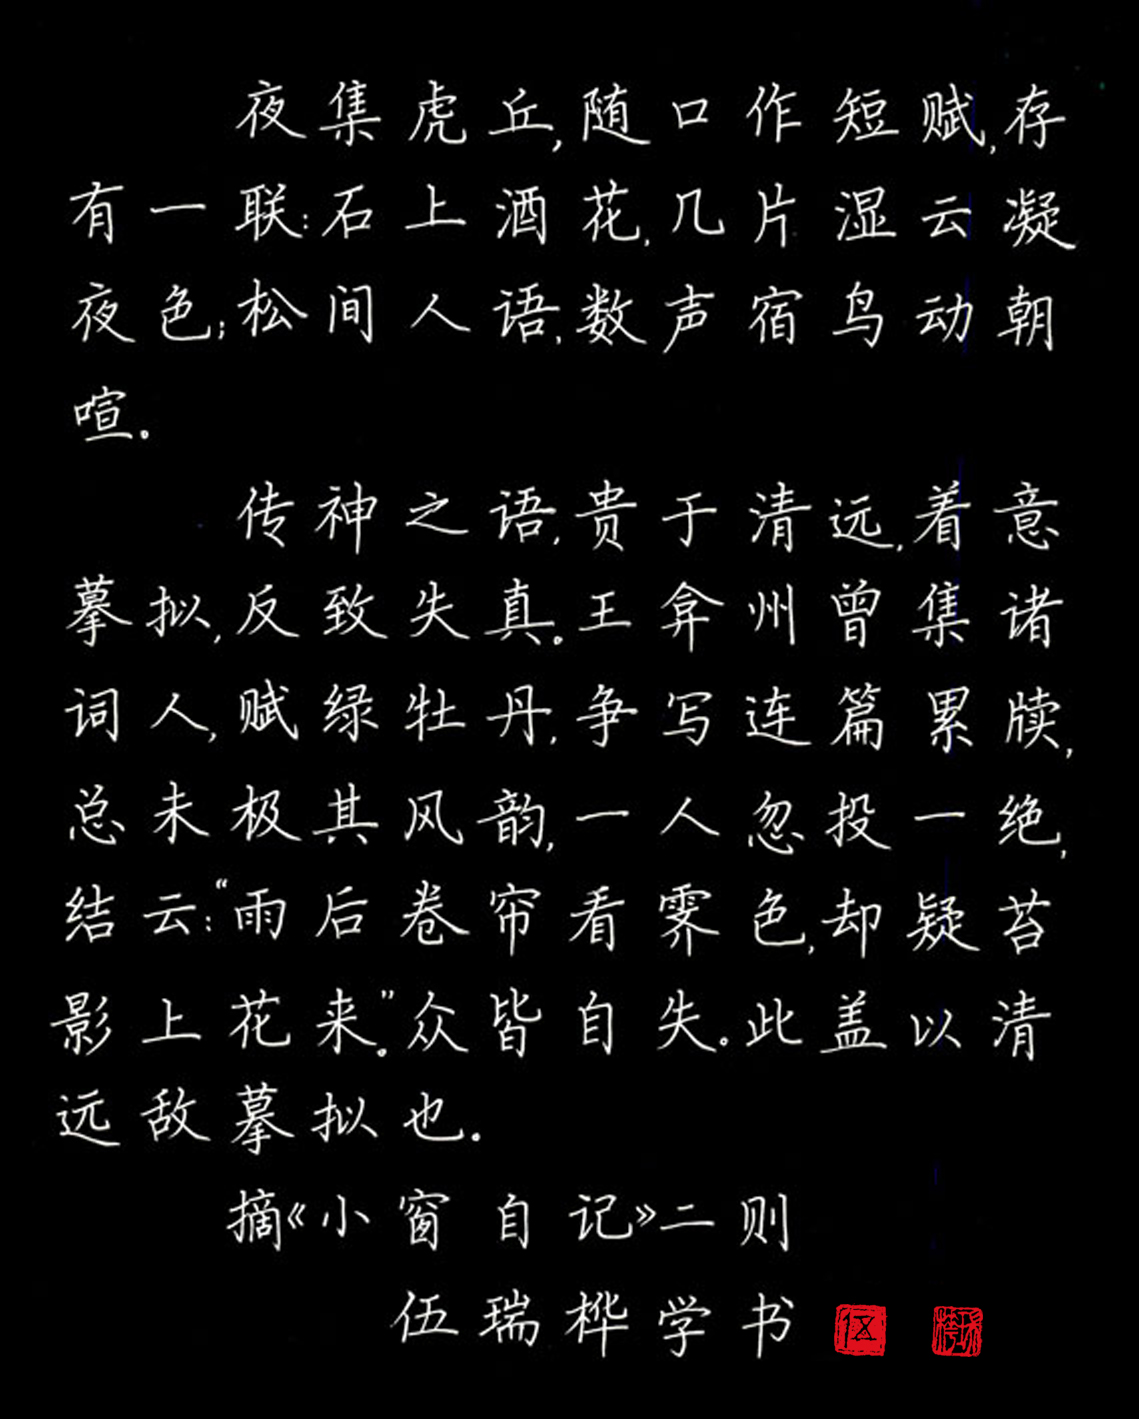 夜集虎丘，随口作短赋，存
有一联：石上酒花，几片湿云凝
夜色；松间人语，数声宿鸟动朝
喧。
传神之语，贵于清远，着意
摹拟，反致失真。王弇州曾集诸
词人，赋绿牡丹，争写连篇累牍，
总未极其风韵，一人忽投一绝，
结云：“雨后卷帘看霁色，却疑苔
影上花来。”众皆自失。此盖以清
远敌摹拟也。
摘《小窗自记》二则
伍瑞桦学书 伍